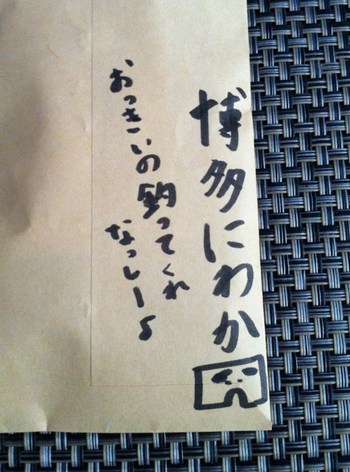 博多にわか
おっきいの釣ってくれ
なっしーよ